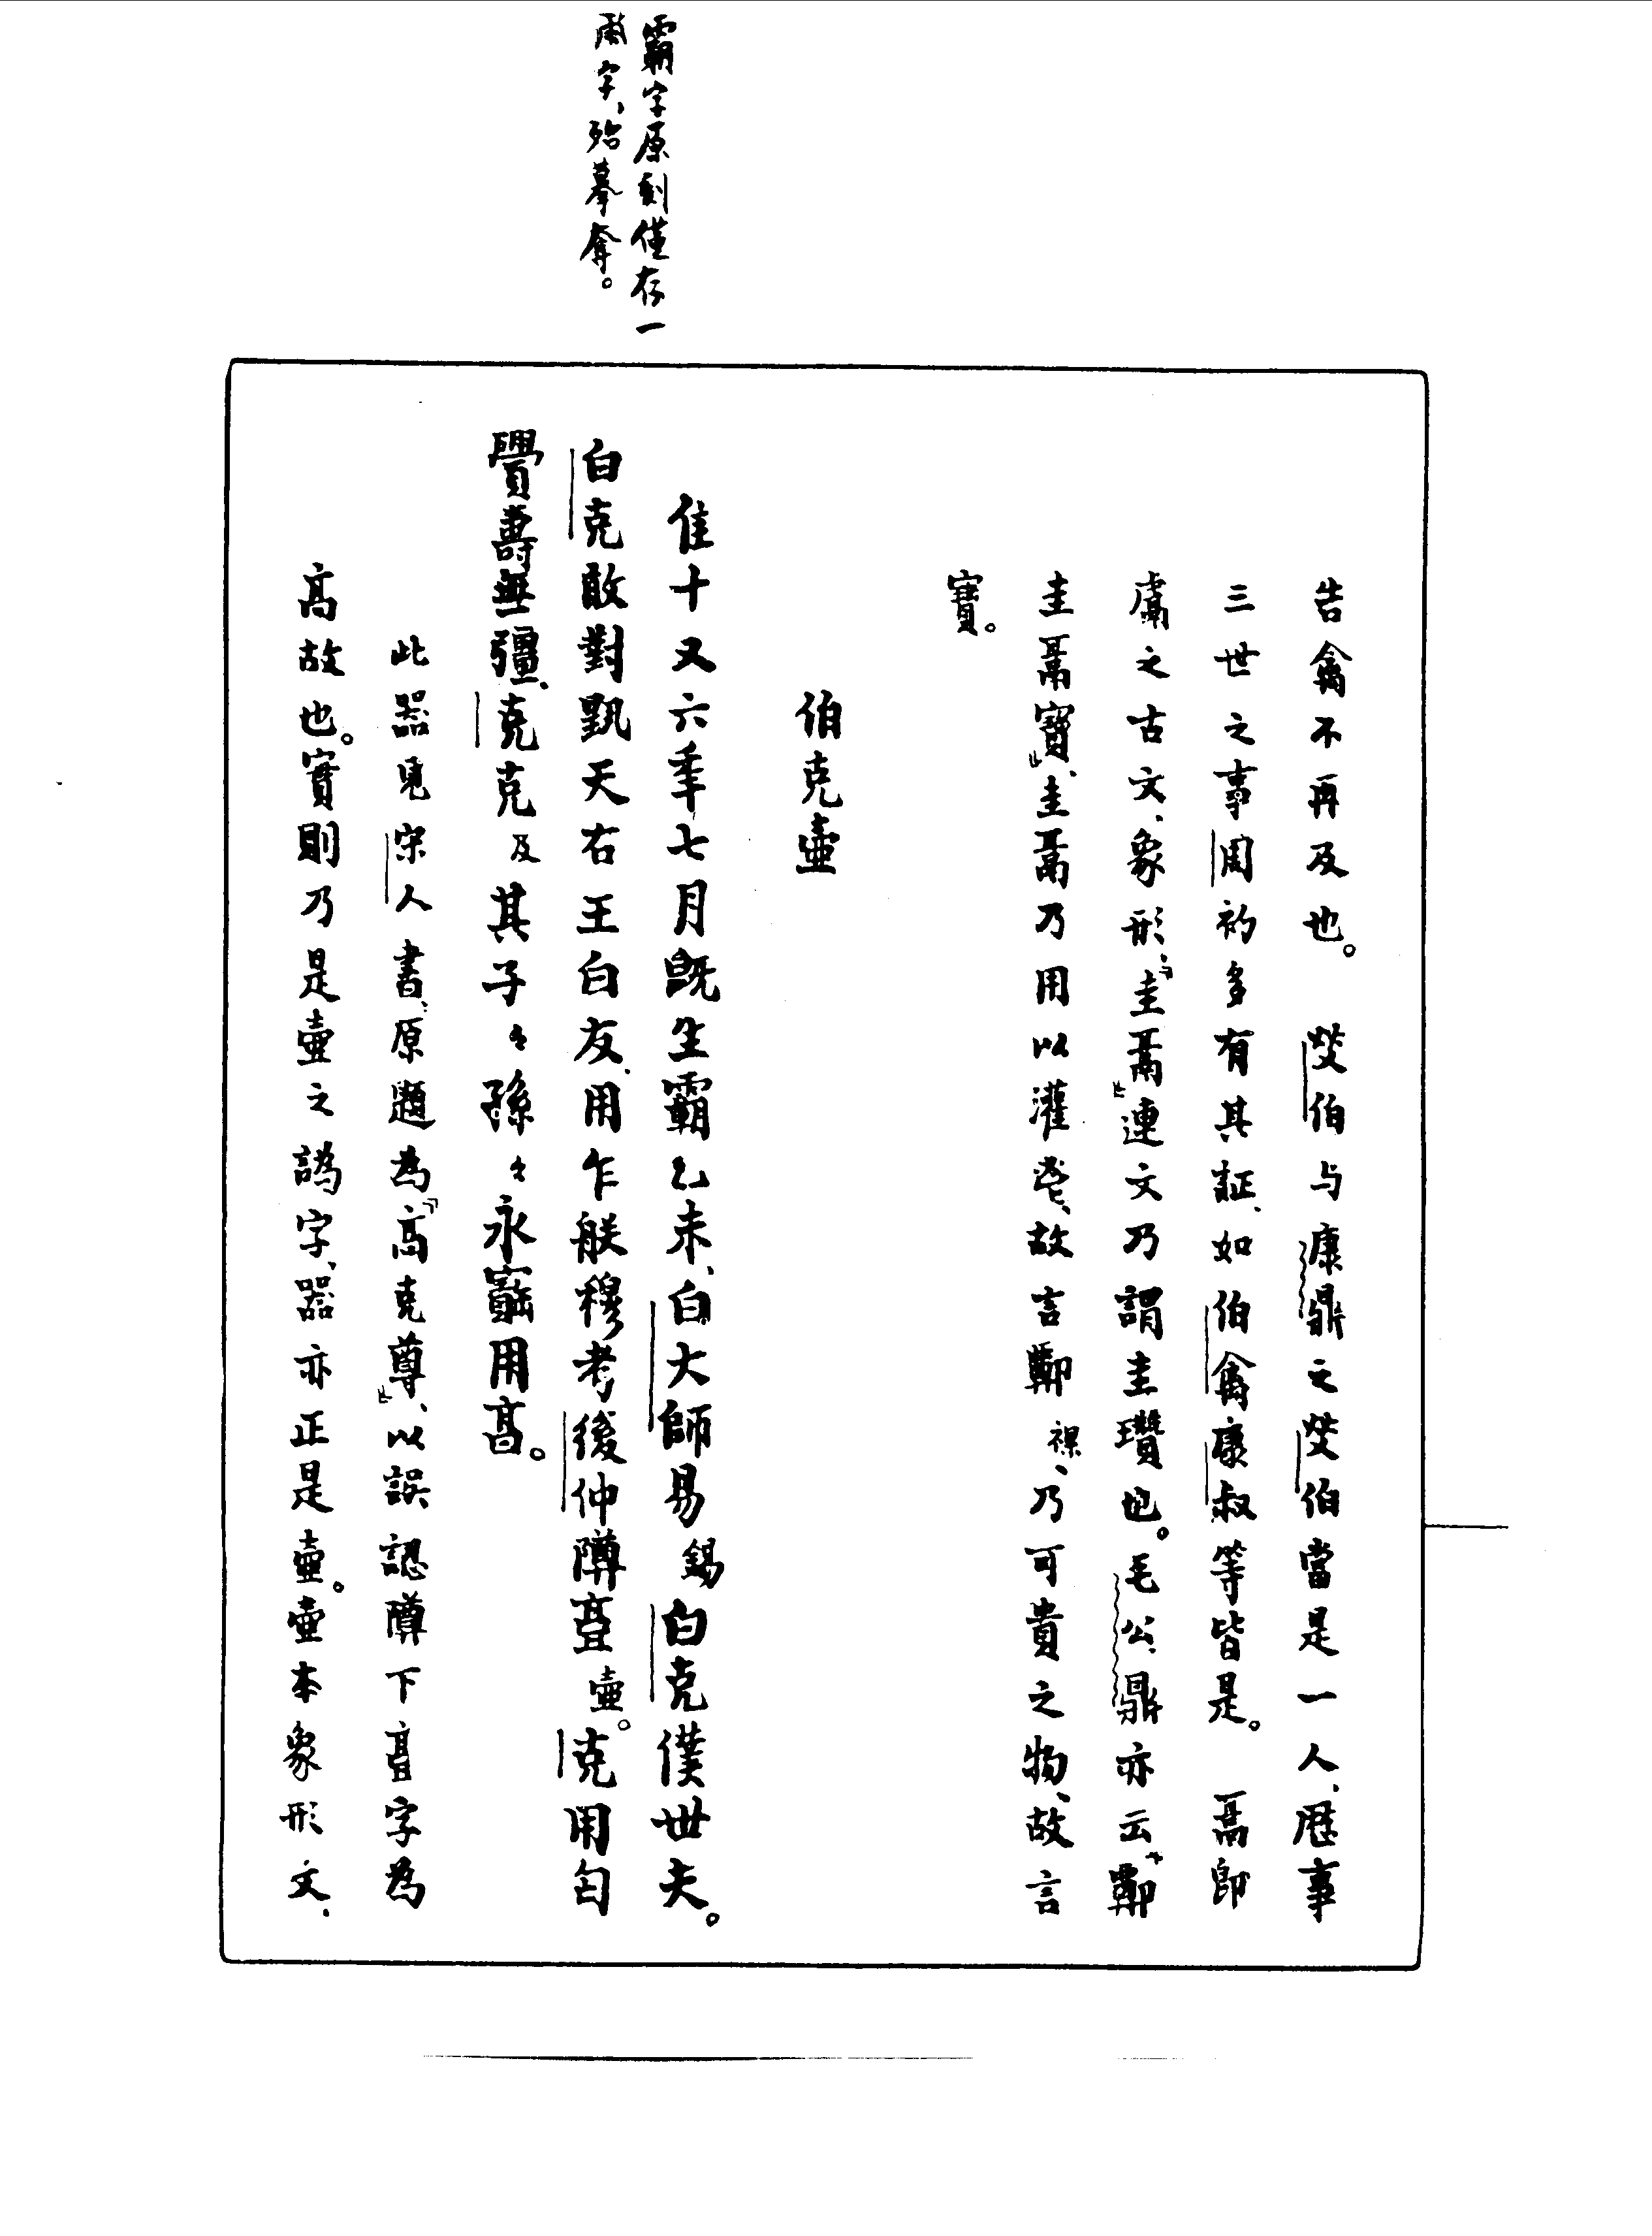 霸字原刻僅存一
雨字、殆摹奪。
告禽不再及也。　燓伯与康鼎之燓伯當是一人、歷事
三世之事周初多有其証、如伯禽康叔等皆是。　鬲即
鬳之古文、象形、「圭鬲」連文乃謂圭瓚也。毛公鼎亦云「鄩
圭鬲寶」、圭鬲乃用以灌鬯、故言祼、乃可貴之物、故言
寶。
伯克壺
隹十又六年七月既生霸乙未、白大師易錫白克僕卅夫。
白克敢對覭天右王白友、用乍朕穆考後仲障壺。克用匄
眉壽無彊、克克及其子〻孫〻永寶用亯。
此器見宋人書、原題為「高克尊」、以誤認障下字為
高故也。實則乃是壺之譌字、器亦正是壺。壺本象形文、